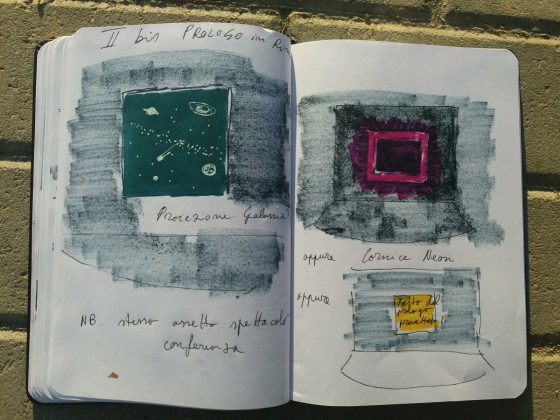 II bis PROLOGO in
Proiezione Galassia
NB. stesso assetto spettacolo
conferenza
oppure Cornice Neon
oppure
testo del
prologo